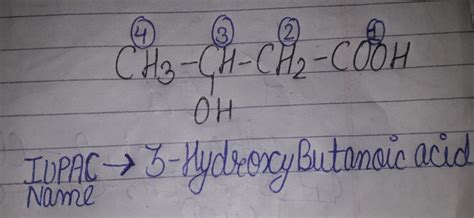 4 3 2 1
CH3-CH-CH2-COOH
OH
IUPAC → 3-HydroxyButanoic acid
Name